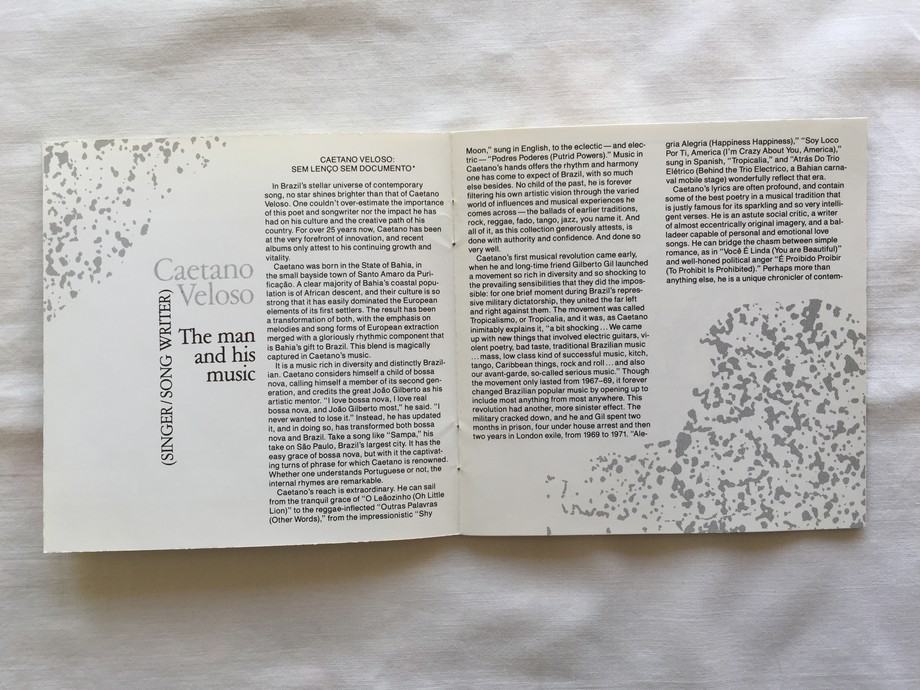 Caetano
Veloso
(SINGER/SONG WRITER)
The man
and his
music
CAETANO VELOSO:
SEM LENÇO SEM DOCUMENTO*
In Brazil's stellar universe of contemporary
song, no star shines brighter than that of Caetano
Veloso. One couldn't over-estimate the importance
of this poet and songwriter nor the impact he has
had on his culture and the creative path of his
country. For over 25 years now, Caetano has been
at the very forefront of innovation, and recent
albums only attest to his continuing growth and
vitality.
Caetano was born in the State of Bahia, in
the small bayside town of Santo Amaro da Puri-
ficação. A clear majority of Bahia's coastal popu-
lation is of African descent, and their culture is so
strong that it has easily dominated the European
elements of its first settlers. The result has been
a transformation of both, with the emphasis on
melodies and song forms of European extraction
merged with a gloriously rhythmic component that
is Bahia's gift to Brazil. This blend is magically
captured in Caetano's music.
It is a music rich in diversity and distinctly Brazil-
ian. Caetano considers himself a child of bossa
nova, calling himself a member of its second gen-
eration, and credits the great João Gilberto as his
artistic mentor. "I love bossa nova, I love real
bossa nova, and João Gilberto most," he said. "I
never wanted to lose it." Instead, he has updated
it, and in doing so, has transformed both bossa
nova and Brazil. Take a song like "Sampa," his
take on São Paulo, Brazil's largest city. It has the
easy grace of bossa nova, but with it the captivat-
ing turns of phrase for which Caetano is renowned.
Whether one understands Portuguese or not, the
internal rhymes are remarkable.
Caetano's reach is extraordinary. He can sail
from the tranquil grace of "O Leãozinho (Oh Little
Lion)" to the reggae-inflected "Outras Palavras
(Other Words)," from the impressionistic "Shy
Moon," sung in English, to the eclectic — and elec-
tric — "Podres Poderes (Putrid Powers)." Music in
Caetano's hands offers the rhythm and harmony
one has come to expect of Brazil, with so much
else besides. No child of the past, he is forever
filtering his own artistic vision through the varied
world of influences and musical experiences he
comes across — the ballads of earlier traditions,
rock, reggae, fado, tango, jazz, you name it. And
all of it, as this collection generously attests, is
done with authority and confidence. And done so
very well.
Caetano's first musical revolution came early,
when he and long-time friend Gilberto Gil launched
a movement so rich in diversity and so shocking to
the prevailing sensibilities that they did the impos-
sible: for one brief moment during Brazil's repres-
sive military dictatorship, they united the far left
and right against them. The movement was called
Tropicalismo, or Tropicalia, and it was, as Caetano
inimitably explains it, "a bit shocking . . . We came
up with new things that involved electric guitars, vi-
olent poetry, bad taste, traditional Brazilian music
. . . mass, low class kind of successful music, kitch,
tango, Caribbean things, rock and roll . . . and also
our avant-garde, so-called serious music." Though
the movement only lasted from 1967–69, it forever
changed Brazilian popular music by opening up to
include most anything from most anywhere. This
revolution had another, more sinister effect. The
military cracked down, and he and Gil spent two
months in prison, four under house arrest and then
two years in London exile, from 1969 to 1971. "Ale-
gria Alegria (Happiness Happiness)," "Soy Loco
Por Ti, America (I'm Crazy About You, America),"
sung in Spanish, "Tropicalia," and "Atrás Do Trio
Elétrico (Behind the Trio Electrico, a Bahian carna-
val mobile stage) wonderfully reflect that era.
Caetano's lyrics are often profound, and contain
some of the best poetry in a musical tradition that
is justly famous for its sparkling and so very intelli-
gent verses. He is an astute social critic, a writer
of almost eccentrically original imagery, and a bal-
ladeer capable of personal and emotional love
songs. He can bridge the chasm between simple
romance, as in "Você É Linda (You are Beautiful)"
and well-honed political anger "É Proibido Proibir
(To Prohibit Is Prohibited)." Perhaps more than
anything else, he is a unique chronicler of contem-